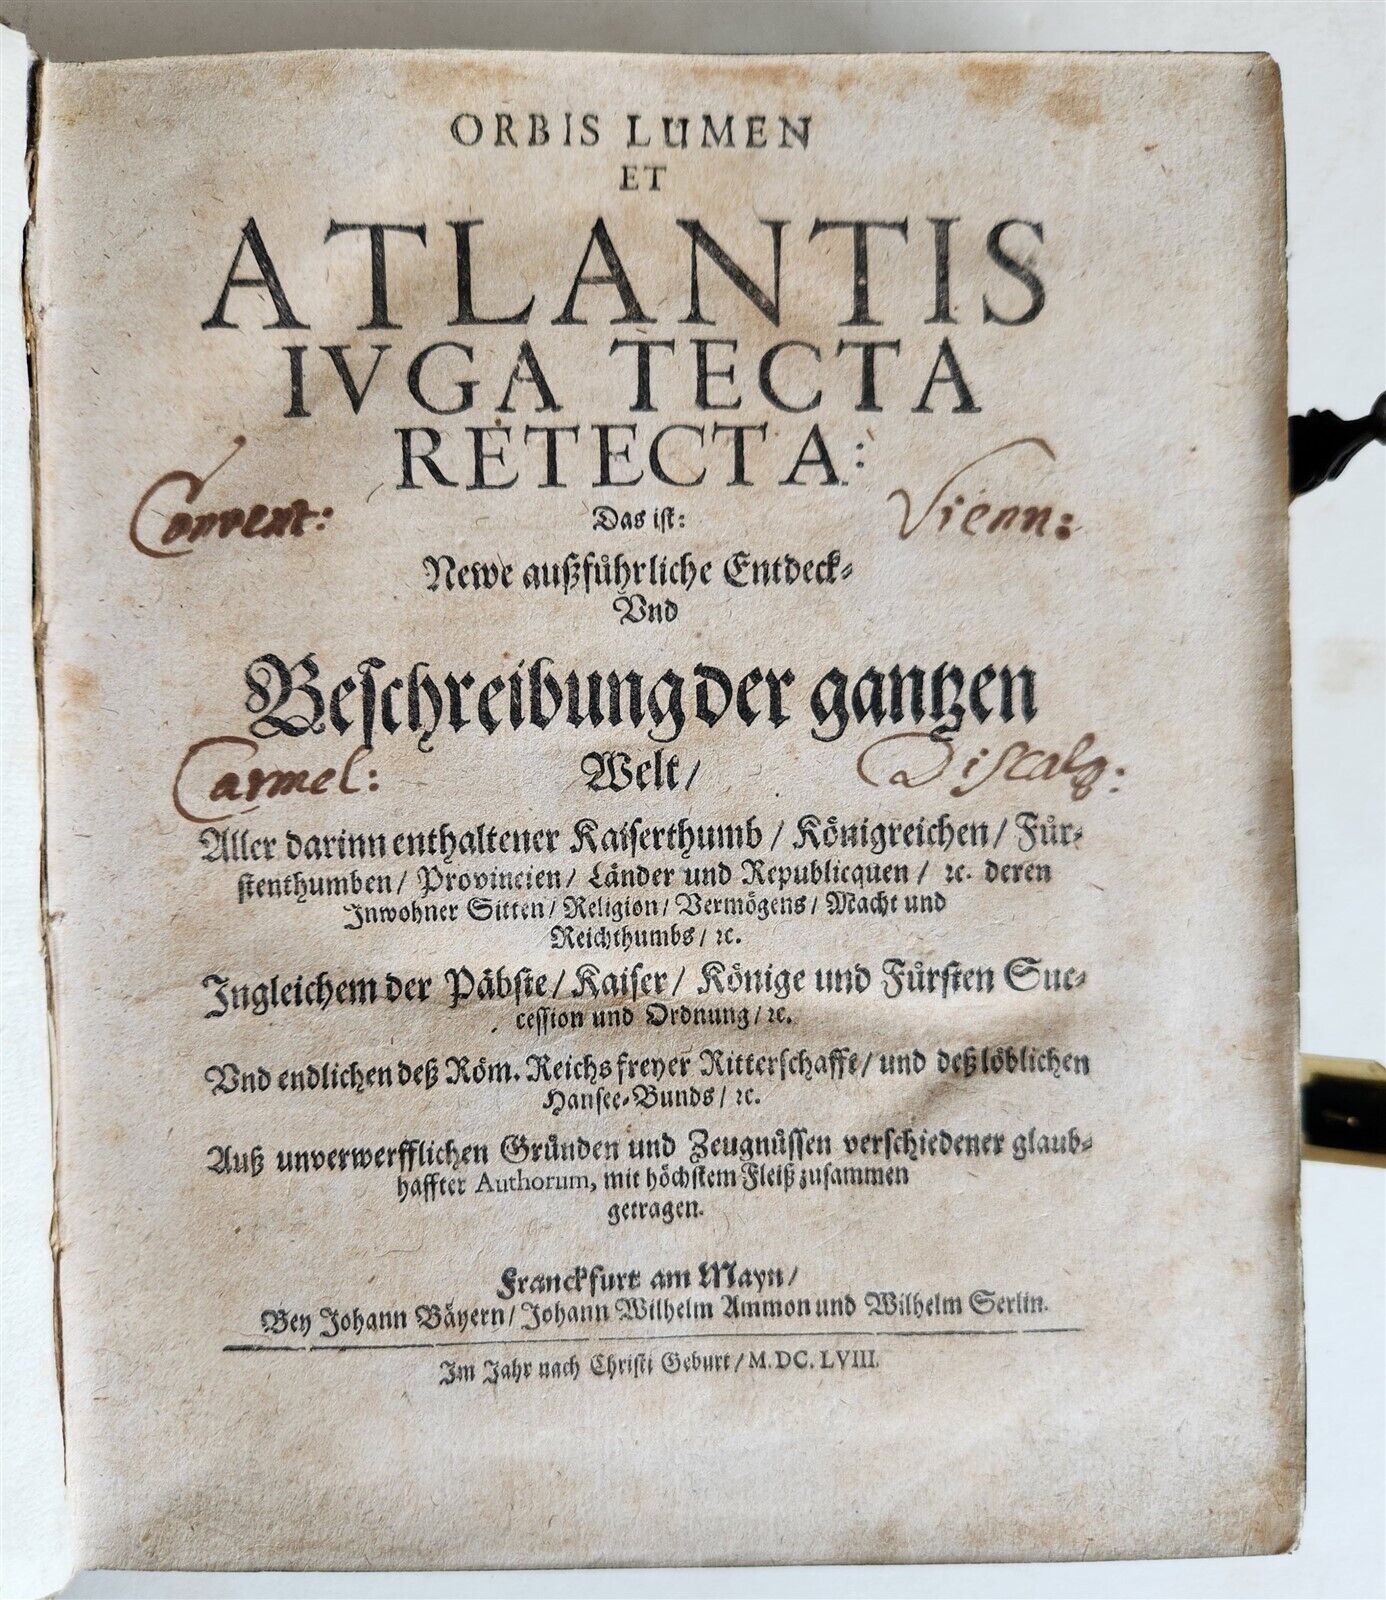 ORBIS LUMEN
ET
ATLANTIS
IVGA TECTA
RETECTA:
Convent: Das ist: Vienn:
Newe außführliche Entdeck-
Vnd
Beschreibung der gantzen
Carmel: Welt/ Discalc:
Aller darinn enthaltener Kaiserthumb/ Königreichen/ Für-
stenthumben/ Provincien/ Länder und Republicquen/ ꝛc. deren
Inwohner Sitten/ Religion/ Vermögens/ Macht und
Reichthumbs/ ꝛc.
Ingleichem der Päbste/ Kaiser/ Könige und Fürsten Suc-
cession und Ordnung/ ꝛc.
Vnd endlichen deß Röm. Reichs freyer Ritterschafft/ und deß löblichen
Hansee-Bunds/ ꝛc.
Auß unverwerfflichen Gründen und Zeugnüssen verschiedener glaub-
haffter Authorum, mit höchstem Fleiß zusammen
getragen.
Franckfurt am Mayn/
Bey Johann Bäyern/ Johann Wilhelm Ammon und Wilhelm Serlin.
Im Jahr nach Christi Geburt/ M.DC.LVIII.